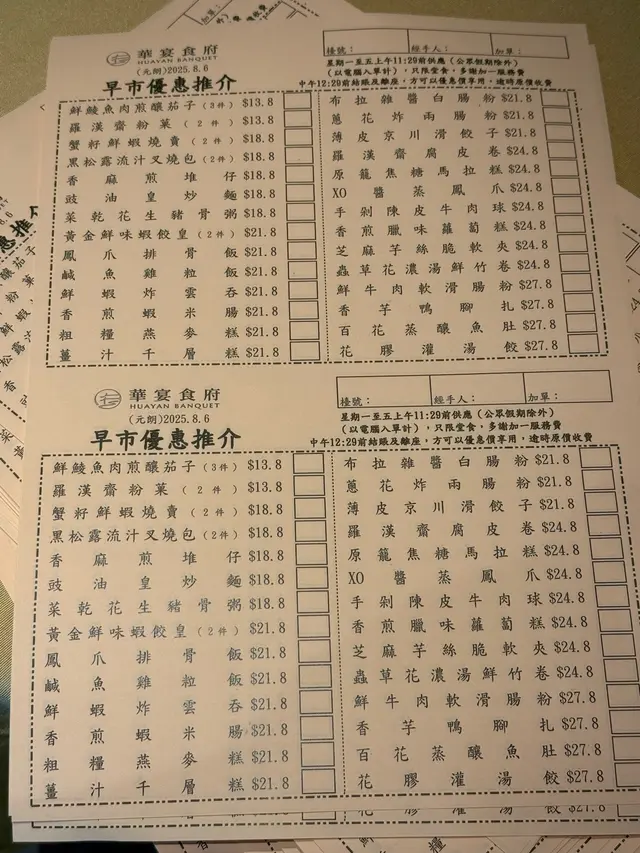 華宴食府
HUAYAN BANQUET
(元朗)2025.8.6
早市優惠推介
檯號：
經手人：
加單：
星期一至五上午11:29前供應（公眾假期除外）
（以電腦入單計），只限堂食，多謝加一服務費
中午12:29前結賬及離座，方可以優惠價享用，逾時原價收費
鮮鯪魚肉煎釀茄子（3件）$13.8
羅漢齋粉菓（2件）$13.8
蟹籽鮮蝦燒賣（2件）$18.8
黑松露流汁叉燒包（2件）$18.8
香麻煎堆仔$18.8
豉油皇炒麵$18.8
菜乾花生豬骨粥$18.8
黃金鮮味蝦餃皇（2件）$21.8
鳳爪排骨飯$21.8
鹹魚雞粒飯$21.8
鮮蝦炸雲吞$21.8
香煎蝦米腸$21.8
粗糧燕麥糕$21.8
薑汁千層糕$21.8
布拉雜醬白腸粉$21.8
蔥花炸兩腸粉$21.8
薄皮京川滑餃子$21.8
羅漢齋腐皮卷$24.8
原籠焦糖馬拉糕$24.8
XO醬蒸鳳爪$24.8
手剁陳皮牛肉球$24.8
香煎臘味蘿蔔糕$24.8
芝麻芋絲脆軟夾$24.8
蟲草花濃湯鮮竹卷$24.8
鮮牛肉軟滑腸粉$27.8
香芋鴨腳扎$27.8
百花蒸釀魚肚$27.8
花膠灌湯餃$27.8
華宴食府
HUAYAN BANQUET
(元朗)2025.8.6
早市優惠推介
檯號：
經手人：
加單：
星期一至五上午11:29前供應（公眾假期除外）
（以電腦入單計），只限堂食，多謝加一服務費
中午12:29前結賬及離座，方可以優惠價享用，逾時原價收費
鮮鯪魚肉煎釀茄子（3件）$13.8
羅漢齋粉菓（2件）$13.8
蟹籽鮮蝦燒賣（2件）$18.8
黑松露流汁叉燒包（2件）$18.8
香麻煎堆仔$18.8
豉油皇炒麵$18.8
菜乾花生豬骨粥$18.8
黃金鮮味蝦餃皇（2件）$21.8
鳳爪排骨飯$21.8
鹹魚雞粒飯$21.8
鮮蝦炸雲吞$21.8
香煎蝦米腸$21.8
粗糧燕麥糕$21.8
薑汁千層糕$21.8
布拉雜醬白腸粉$21.8
蔥花炸兩腸粉$21.8
薄皮京川滑餃子$21.8
羅漢齋腐皮卷$24.8
原籠焦糖馬拉糕$24.8
XO醬蒸鳳爪$24.8
手剁陳皮牛肉球$24.8
香煎臘味蘿蔔糕$24.8
芝麻芋絲脆軟夾$24.8
蟲草花濃湯鮮竹卷$24.8
鮮牛肉軟滑腸粉$27.8
香芋鴨腳扎$27.8
百花蒸釀魚肚$27.8
花膠灌湯餃$27.8